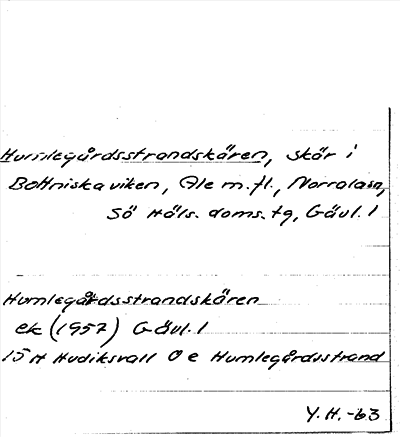 Humlegårdsstrandskären, skär i
Bottniska viken, Ale m.fl., Norrala sn,
Sö Häls. doms. tg, Gävl. l
Humlegårdsstrandskären
ek (1957) Gävl. l
15 H Hudiksvall O e Humlegårdsstrand
Y. H. -63